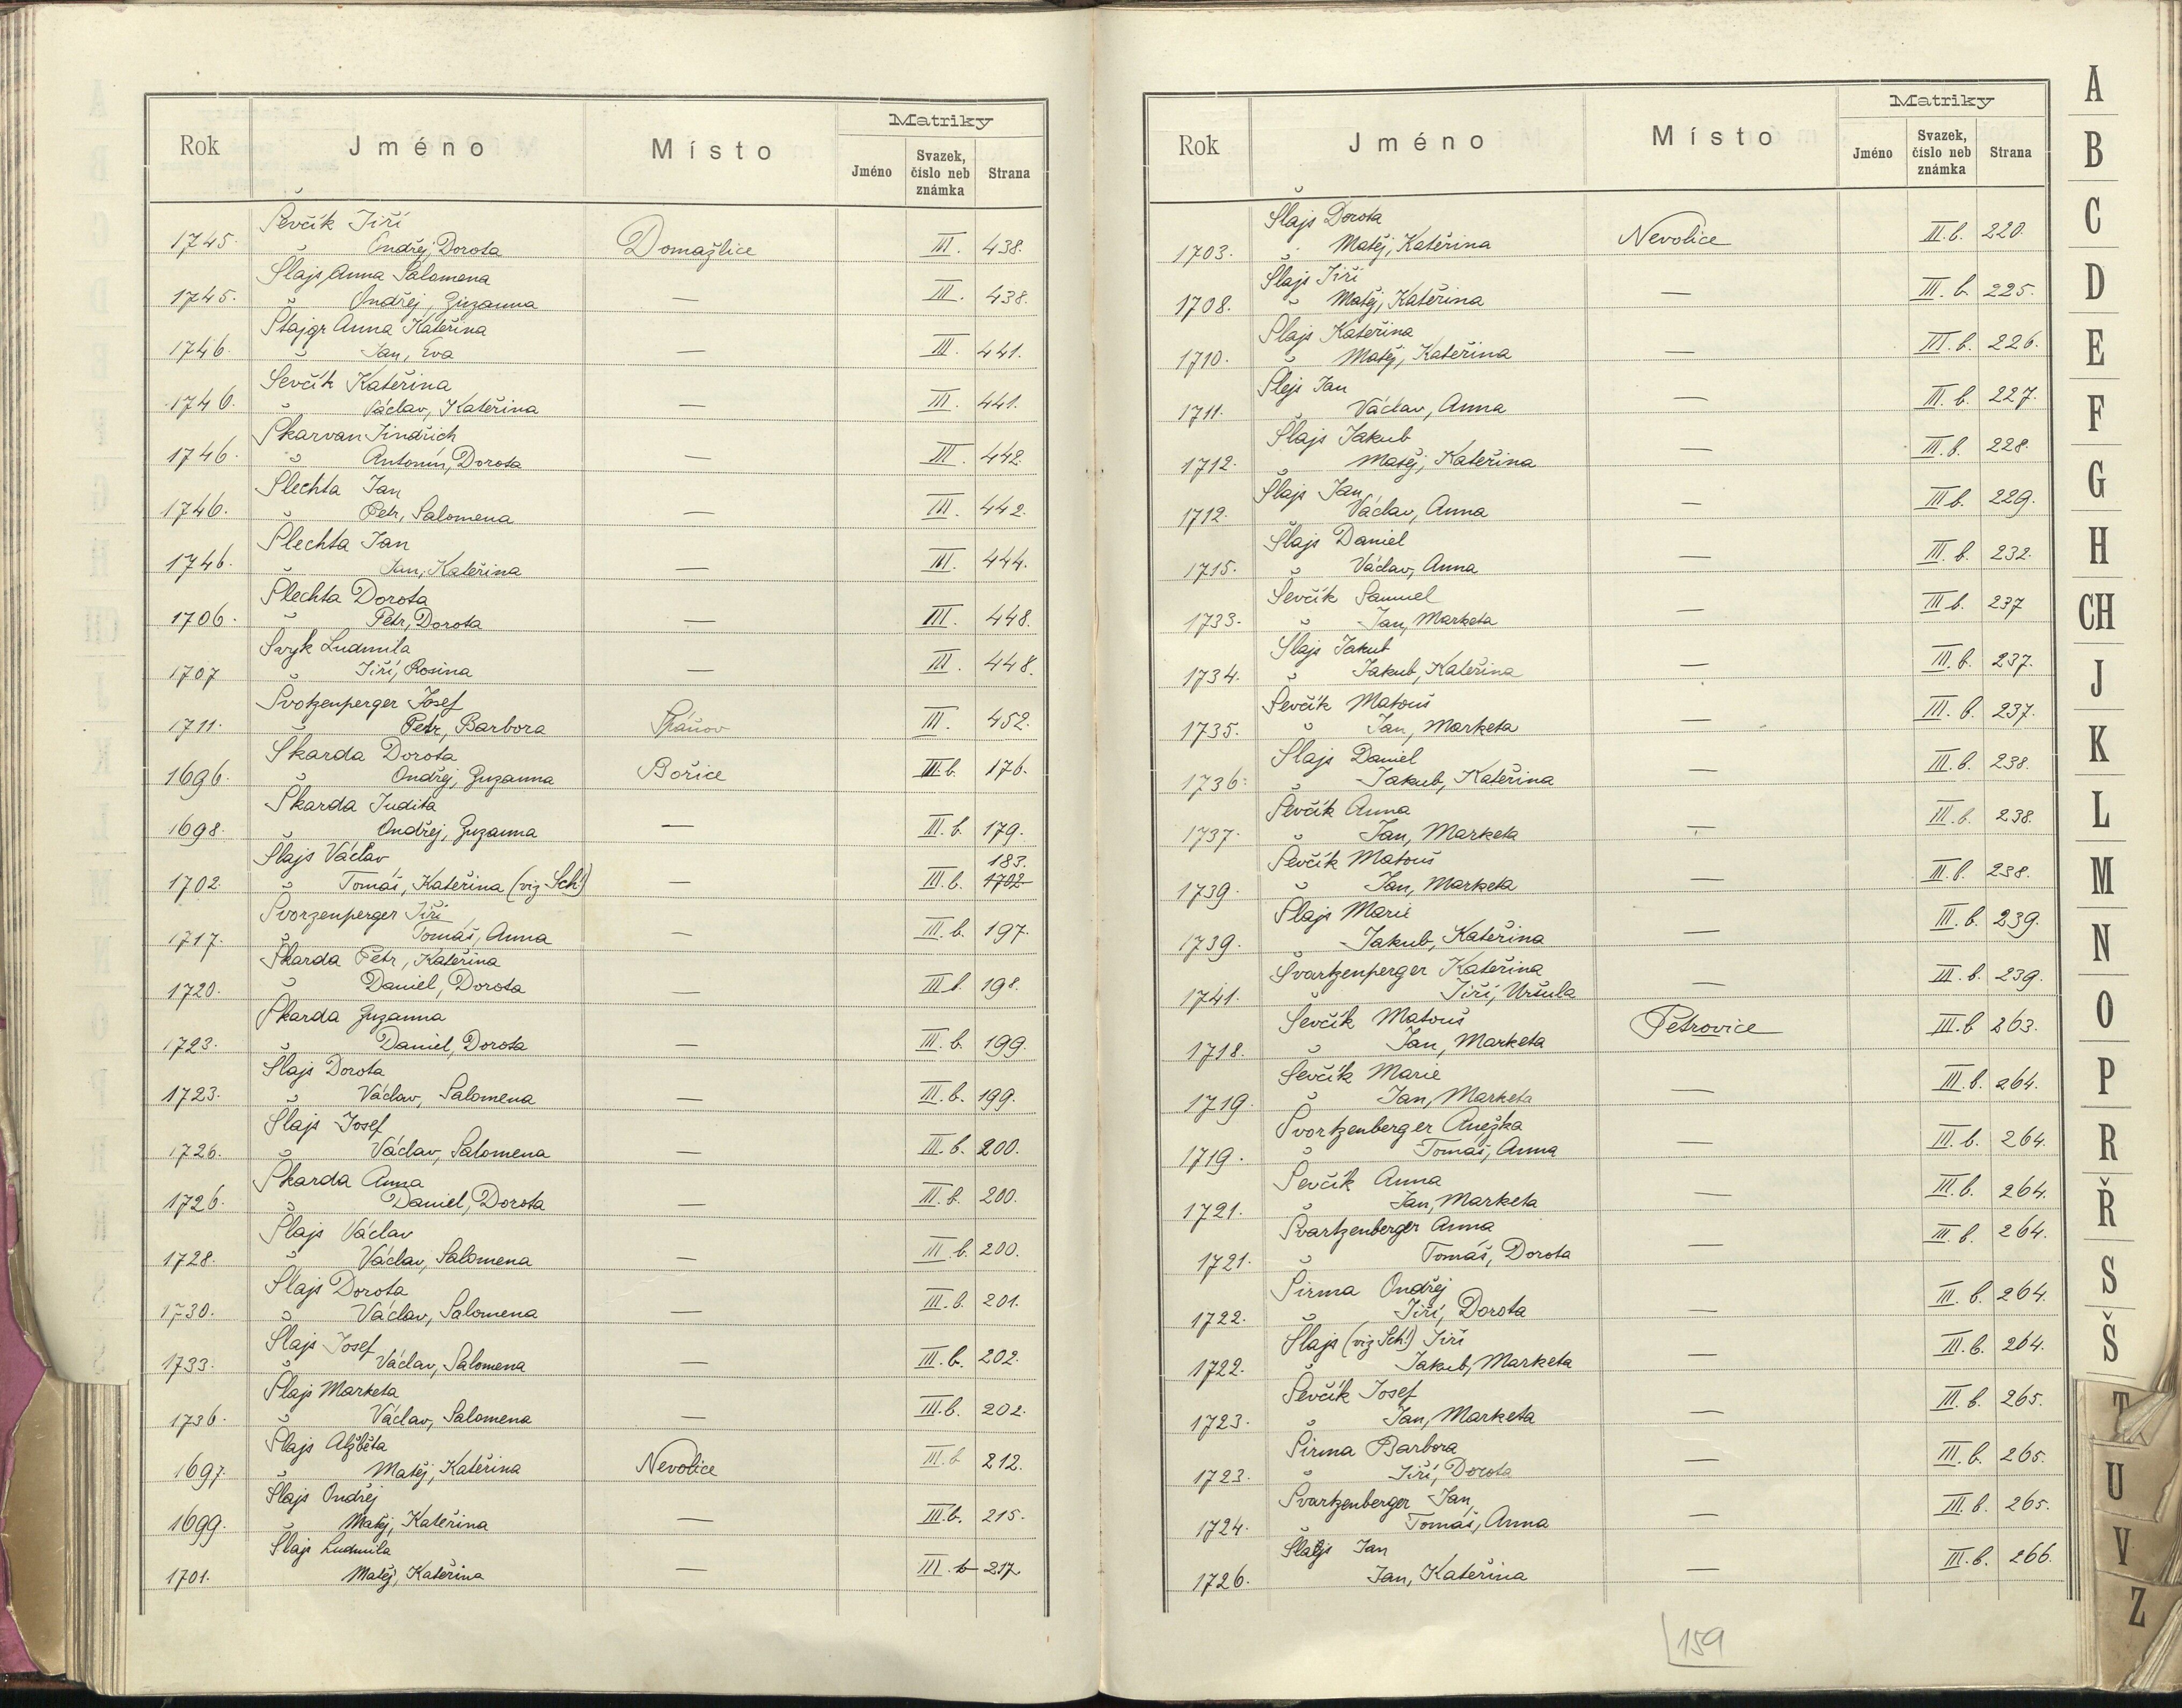 Matriky
Rok Jméno Místo Jméno Svazek, číslo neb známka Strana
Ševčík Jiří
1745. Ondřej, Dorota Domažlice III. 438.
Šlajs Anna Salomena
1745. " Ondřej, Zuzanna — III. 438.
Štajgr Anna Kateřina
1746. " Jan, Eva — III. 441.
Ševčík Kateřina
1746. " Václav, Kateřina — III. 441.
Škarvan Jindřich
1746. " Antonín, Dorota — III. 442.
Šlechta Jan
1746. " Petr, Salomena — III. 442.
Šlechta Jan
1746. " Jan, Kateřina — III. 444.
Šlechta Dorota
1706. " Petr, Dorota — III. 448.
Švyk Ludmila
1707 " Jiří, Rosina — III. 448.
Švotzenperger Josef
1711. " Petr, Barbora Spáňov III. 452.
Škarda Dorota
1696. " Ondřej, Zuzanna Bořice III.b. 176.
Škarda Judita
1698. " Ondřej, Zuzanna — III.b. 179.
Šlajs Václav 183.
1702. " Tomáš, Kateřina (viz Sch!) — III.b. 1702
Švorzenperger Jiří
1717. " Tomáš, Anna — III.b. 197.
Škarda Petr, Kateřina
1720. " Daniel, Dorota — III.b. 198.
Škarda Zuzanna
1723. " Daniel, Dorota — III.b. 199.
Šlajs Dorota
1723. " Václav, Salomena — III.b. 199.
Šlajs Josef
1726. " Václav, Salomena — III.b. 200.
Škarda Anna
1726. " Daniel, Dorota — III.b. 200.
Šlajs Václav
1728. " Václav, Salomena — III.b. 200.
Šlajs Dorota
1730. " Václav, Salomena — III.b. 201.
Šlajs Josef
1733. " Václav, Salomena — III.b. 202.
Šlajs Marketa
1736. " Václav, Salomena — III.b. 202.
Šlajs Alžběta
1697. " Matěj, Kateřina Nevolice III.b 212.
Šlajs Ondřej
1699. Matěj, Kateřina — III.b. 215.
Šlajs Ludmila
1701. Matěj, Kateřina — III.b 217.
Matriky
Rok Jméno Místo Jméno Svazek, číslo neb známka Strana
Šlajs Dorota
1703. " Matěj, Kateřina Nevolice III.b. 220.
Šlajs Jiří
1708. " Matěj, Kateřina — III.b. 225.
Šlajs Kateřina
1710. " Matěj, Kateřina — III.b. 226.
Šlejs Jan
1711. Václav, Anna — III.b. 227.
Šlajs Jakub
1712. Matěj, Kateřina — III.b. 228.
Šlajs Jan
1712. Václav, Anna — III.b. 229.
Šlajs Daniel
1715. " Václav, Anna — III.b. 232.
Ševčík Samuel
1733. " Jan, Marketa — III.b. 237
Šlajs Jakub
1734. " Jakub, Kateřina — III.b. 237.
Ševčík Matouš
1735. " Jan, Marketa — III.b. 237.
Šlajs Daniel
1736. " Jakub, Kateřina — III.b. 238.
Ševčík Anna
1737. " Jan, Marketa — III.b. 238.
Ševčík Matouš
1739. " Jan, Marketa — III.b. 238.
Šlajs Marie
1739. Jakub, Kateřina — III.b. 239.
Švartzenperger Kateřina
1741. Jiří, Uršula — III.b. 239.
Ševčík Matouš
1718. " Jan, Marketa Petrovice III.b 263.
Ševčík Marie
1719. " Jan, Marketa — III.b. 264.
Švortzenberger Anežka
1719. " Tomáš, Anna — III.b. 264.
Ševčík Anna
1721. " Jan, Marketa — III.b. 264.
Švartzenberger Anna
1721. " Tomáš, Dorota — III.b. 264.
Širma Ondřej
1722. " Jiří, Dorota — III.b. 264.
Šlajs (viz Sch!) Jiří
1722. " Jakub, Marketa — III.b. 264.
Ševčík Josef
1723. " Jan, Marketa — III.b. 265.
Širma Barbora
1723. " Jiří, Dorota — III.b. 265.
Švartzenberger Jan
1724. Tomáš, Anna — III.b. 265.
Šlajs Jan
1726. Jan, Kateřina — III.b. 266.
159
A
B
C
D
E
F
G
H
CH
J
K
L
M
N
O
P
R
Ř
S
Š
T
U
V
Z